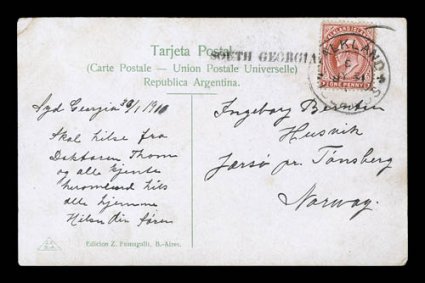 Tarjeta Postal
SOUTH GEORGIA
(Carte Postale — Union Postale Universelle)
Republica Argentina.
FALKLAND
ONE PENNY
Syd Georgia 30/1 1910
Skal hilse fra
Doktoren, Thom
og alle kjente
heromkred hils
alle hjemme
Hilsen din
Ingeborg
Husvik
Jærsø pr. Tönsberg
Norway.
Edicion Z. Fumagalli, B.-Aires.